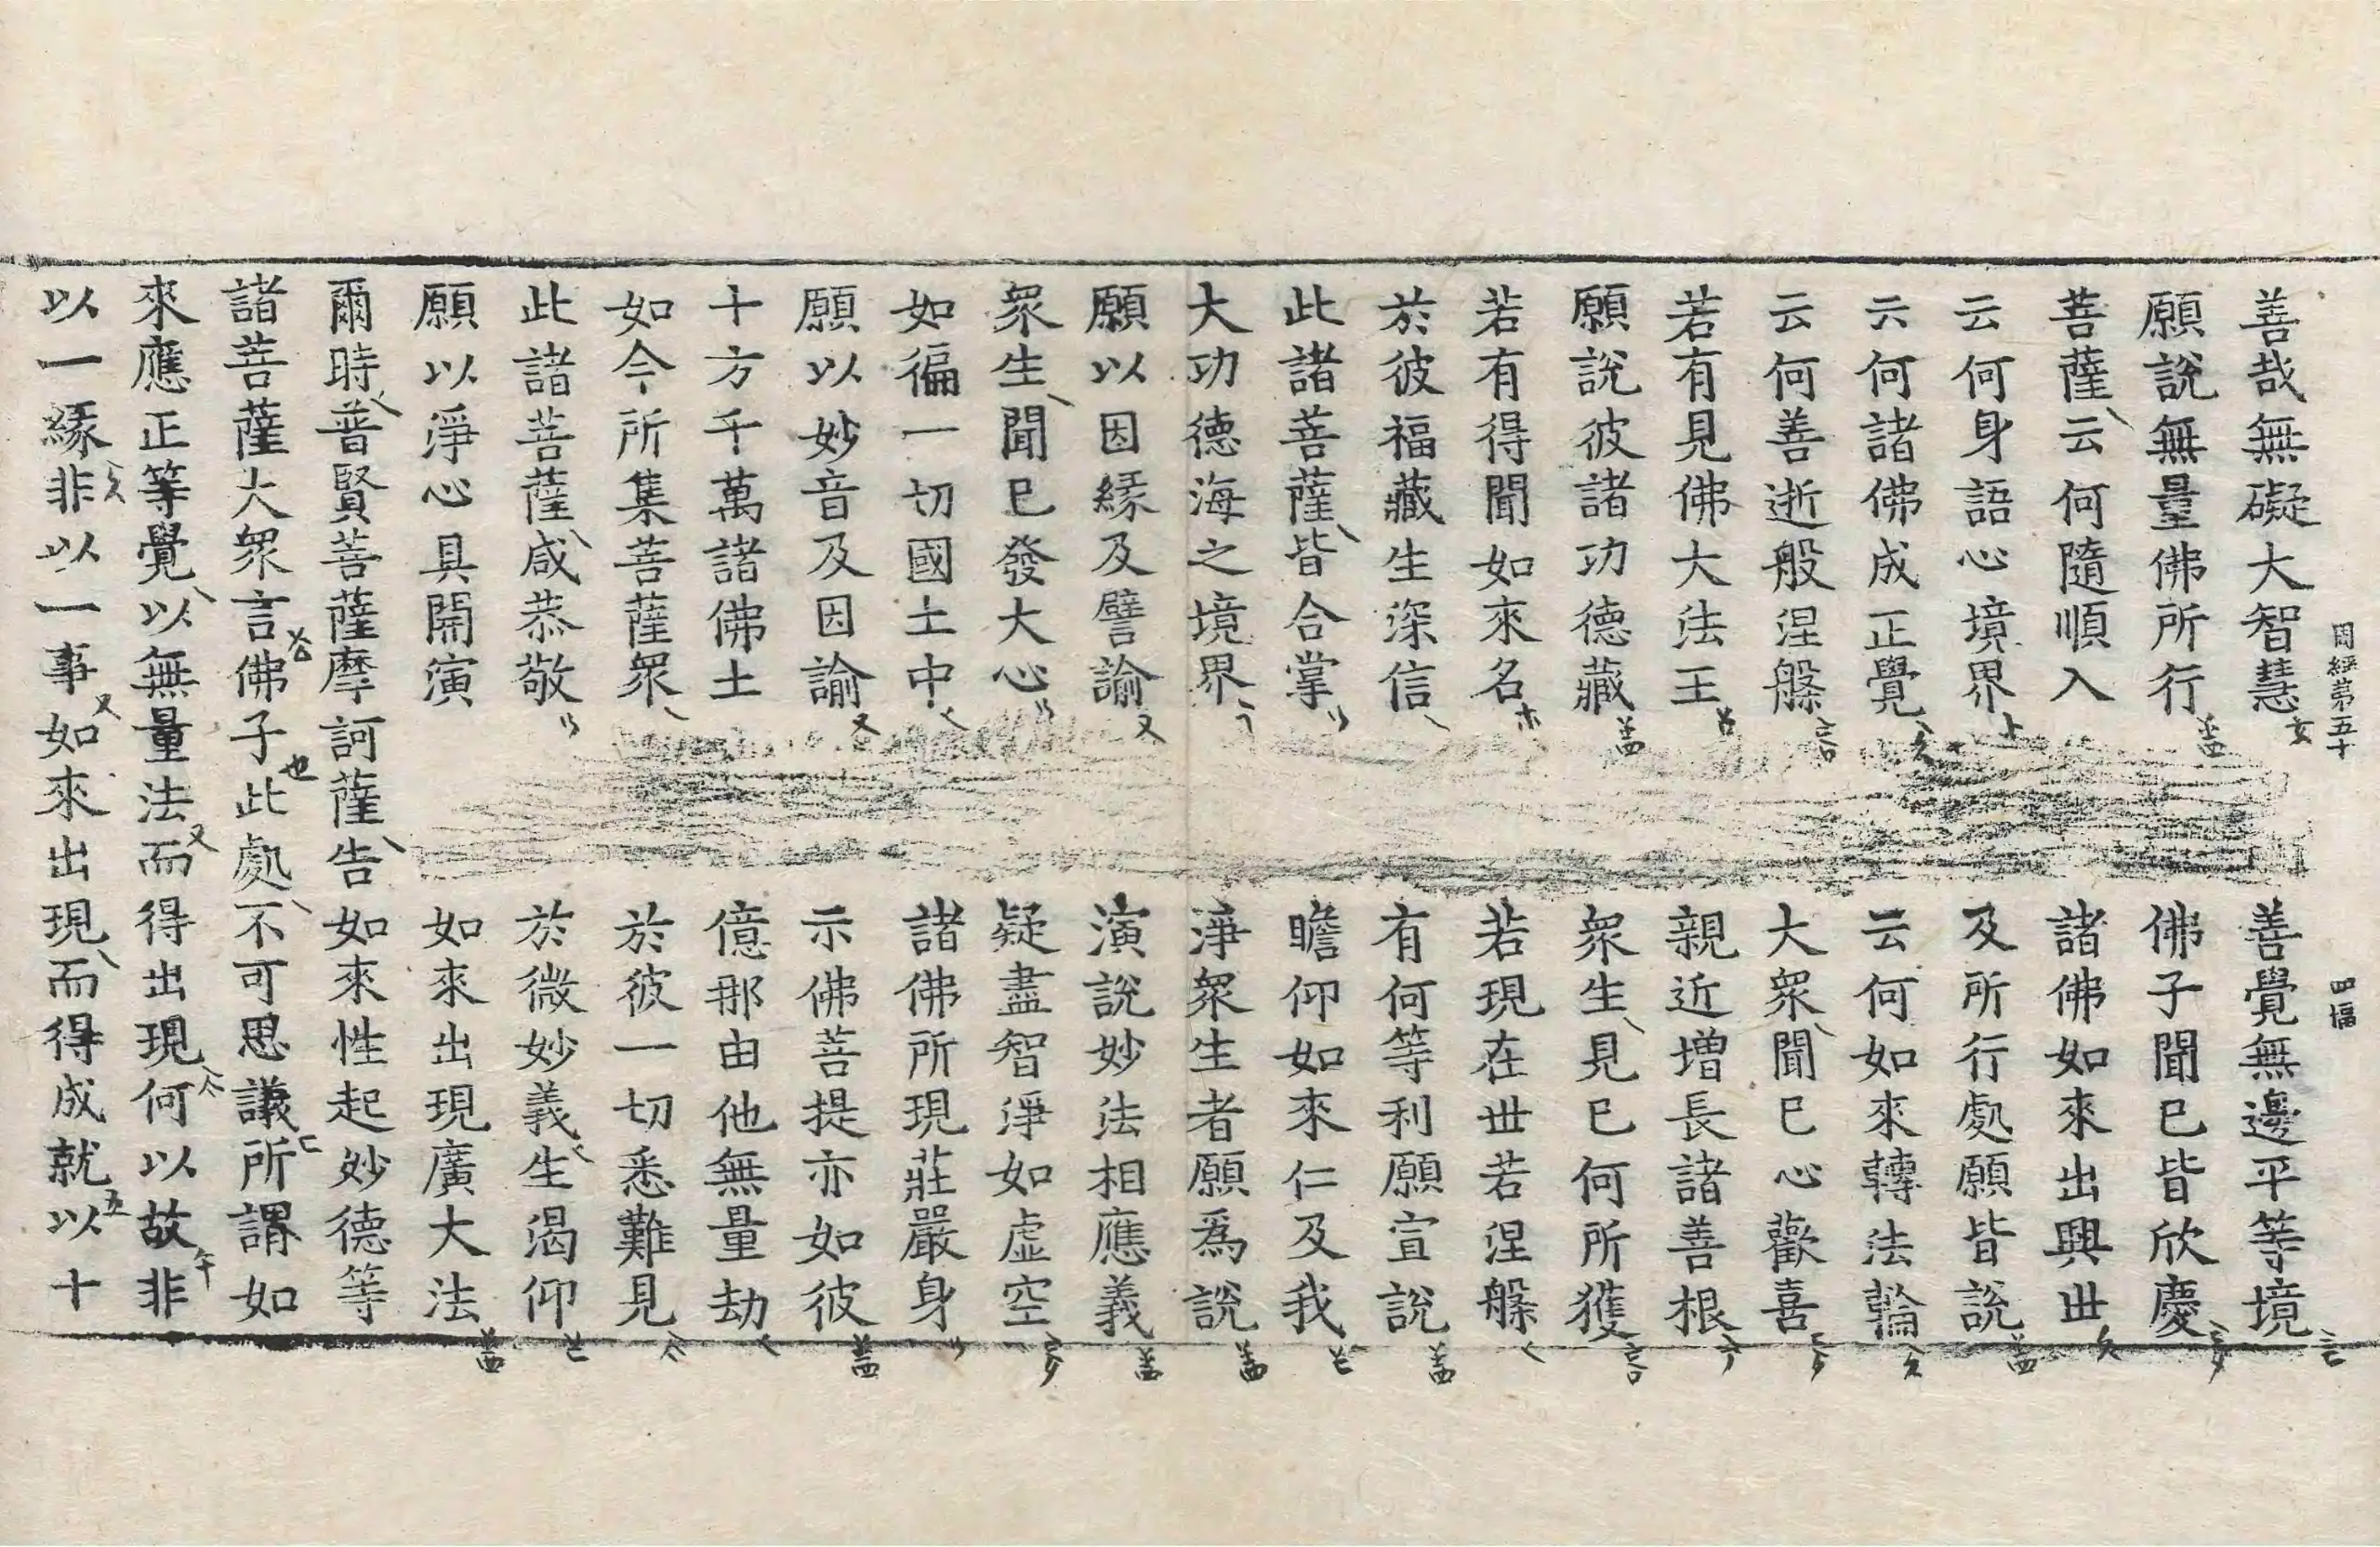 周經第五十 四幅
善哉無礙大智慧 善覺無邊平等境
願說無量佛所行 佛子聞已皆欣慶
菩薩云何隨順入 諸佛如來出興世
云何身語心境界 及所行處願皆說
云何諸佛成正覺 云何如來轉法輪
云何善逝般涅槃 大眾聞已心歡喜
若有見佛大法王 親近增長諸善根
願說彼諸功德藏 眾生見已何所獲
若有得聞如來名 若現在世若涅槃
於彼福藏生深信 有何等利願宣說
此諸菩薩皆合掌 瞻仰如來仁及我
大功德海之境界 淨眾生者願為說
願以因緣及譬諭 演說妙法相應義
眾生聞已發大心 疑盡智淨如虛空
如徧一切國土中 諸佛所現莊嚴身
願以妙音及因諭 示佛菩提亦如彼
十方千萬諸佛土 億那由他無量劫
如今所集菩薩眾 於彼一切悉難見
此諸菩薩咸恭敬 於微妙義生渴仰
願以淨心具開演 如來出現廣大法
爾時普賢菩薩摩訶薩告如來性起妙德等
諸菩薩大眾言佛子此處不可思議所謂如
來應正等覺以無量法而得出現何以故非
以一緣非以一事如來出現而得成就以十